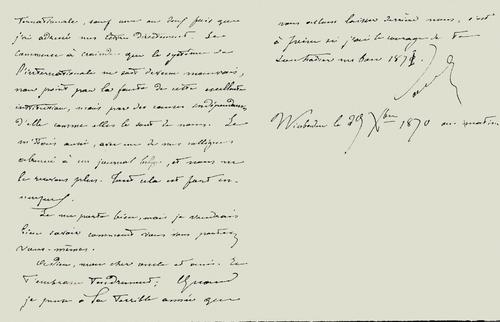 internationale, sauf une ou deux fois que
j'ai adressé mes lettres directement. Je
commence à craindre que le système de
l'internationale ne soit devenu mauvais,
non point par la faute de cette excellente
institution, mais par des causes indépendantes
d'elle comme elles le sont de nous. Je
m'étais aussi, avec un de mes collègues
abonné à un journal belge, et nous ne
le recevons plus. Tout cela est fort en-
nuyeux.
Je me porte bien, mais je voudrais
bien savoir comment vous vous portez
vous-mêmes.
Adieu, mon cher oncle et ami. Je
t'embrasse tendrement. Quand
je pense à la terrible année que
nous allons laisser derrière nous, c'est
à peine si j'ai le courage de te
souhaiter un bon 1871.
Wiesbaden le 29 Xbre 1870 au matin